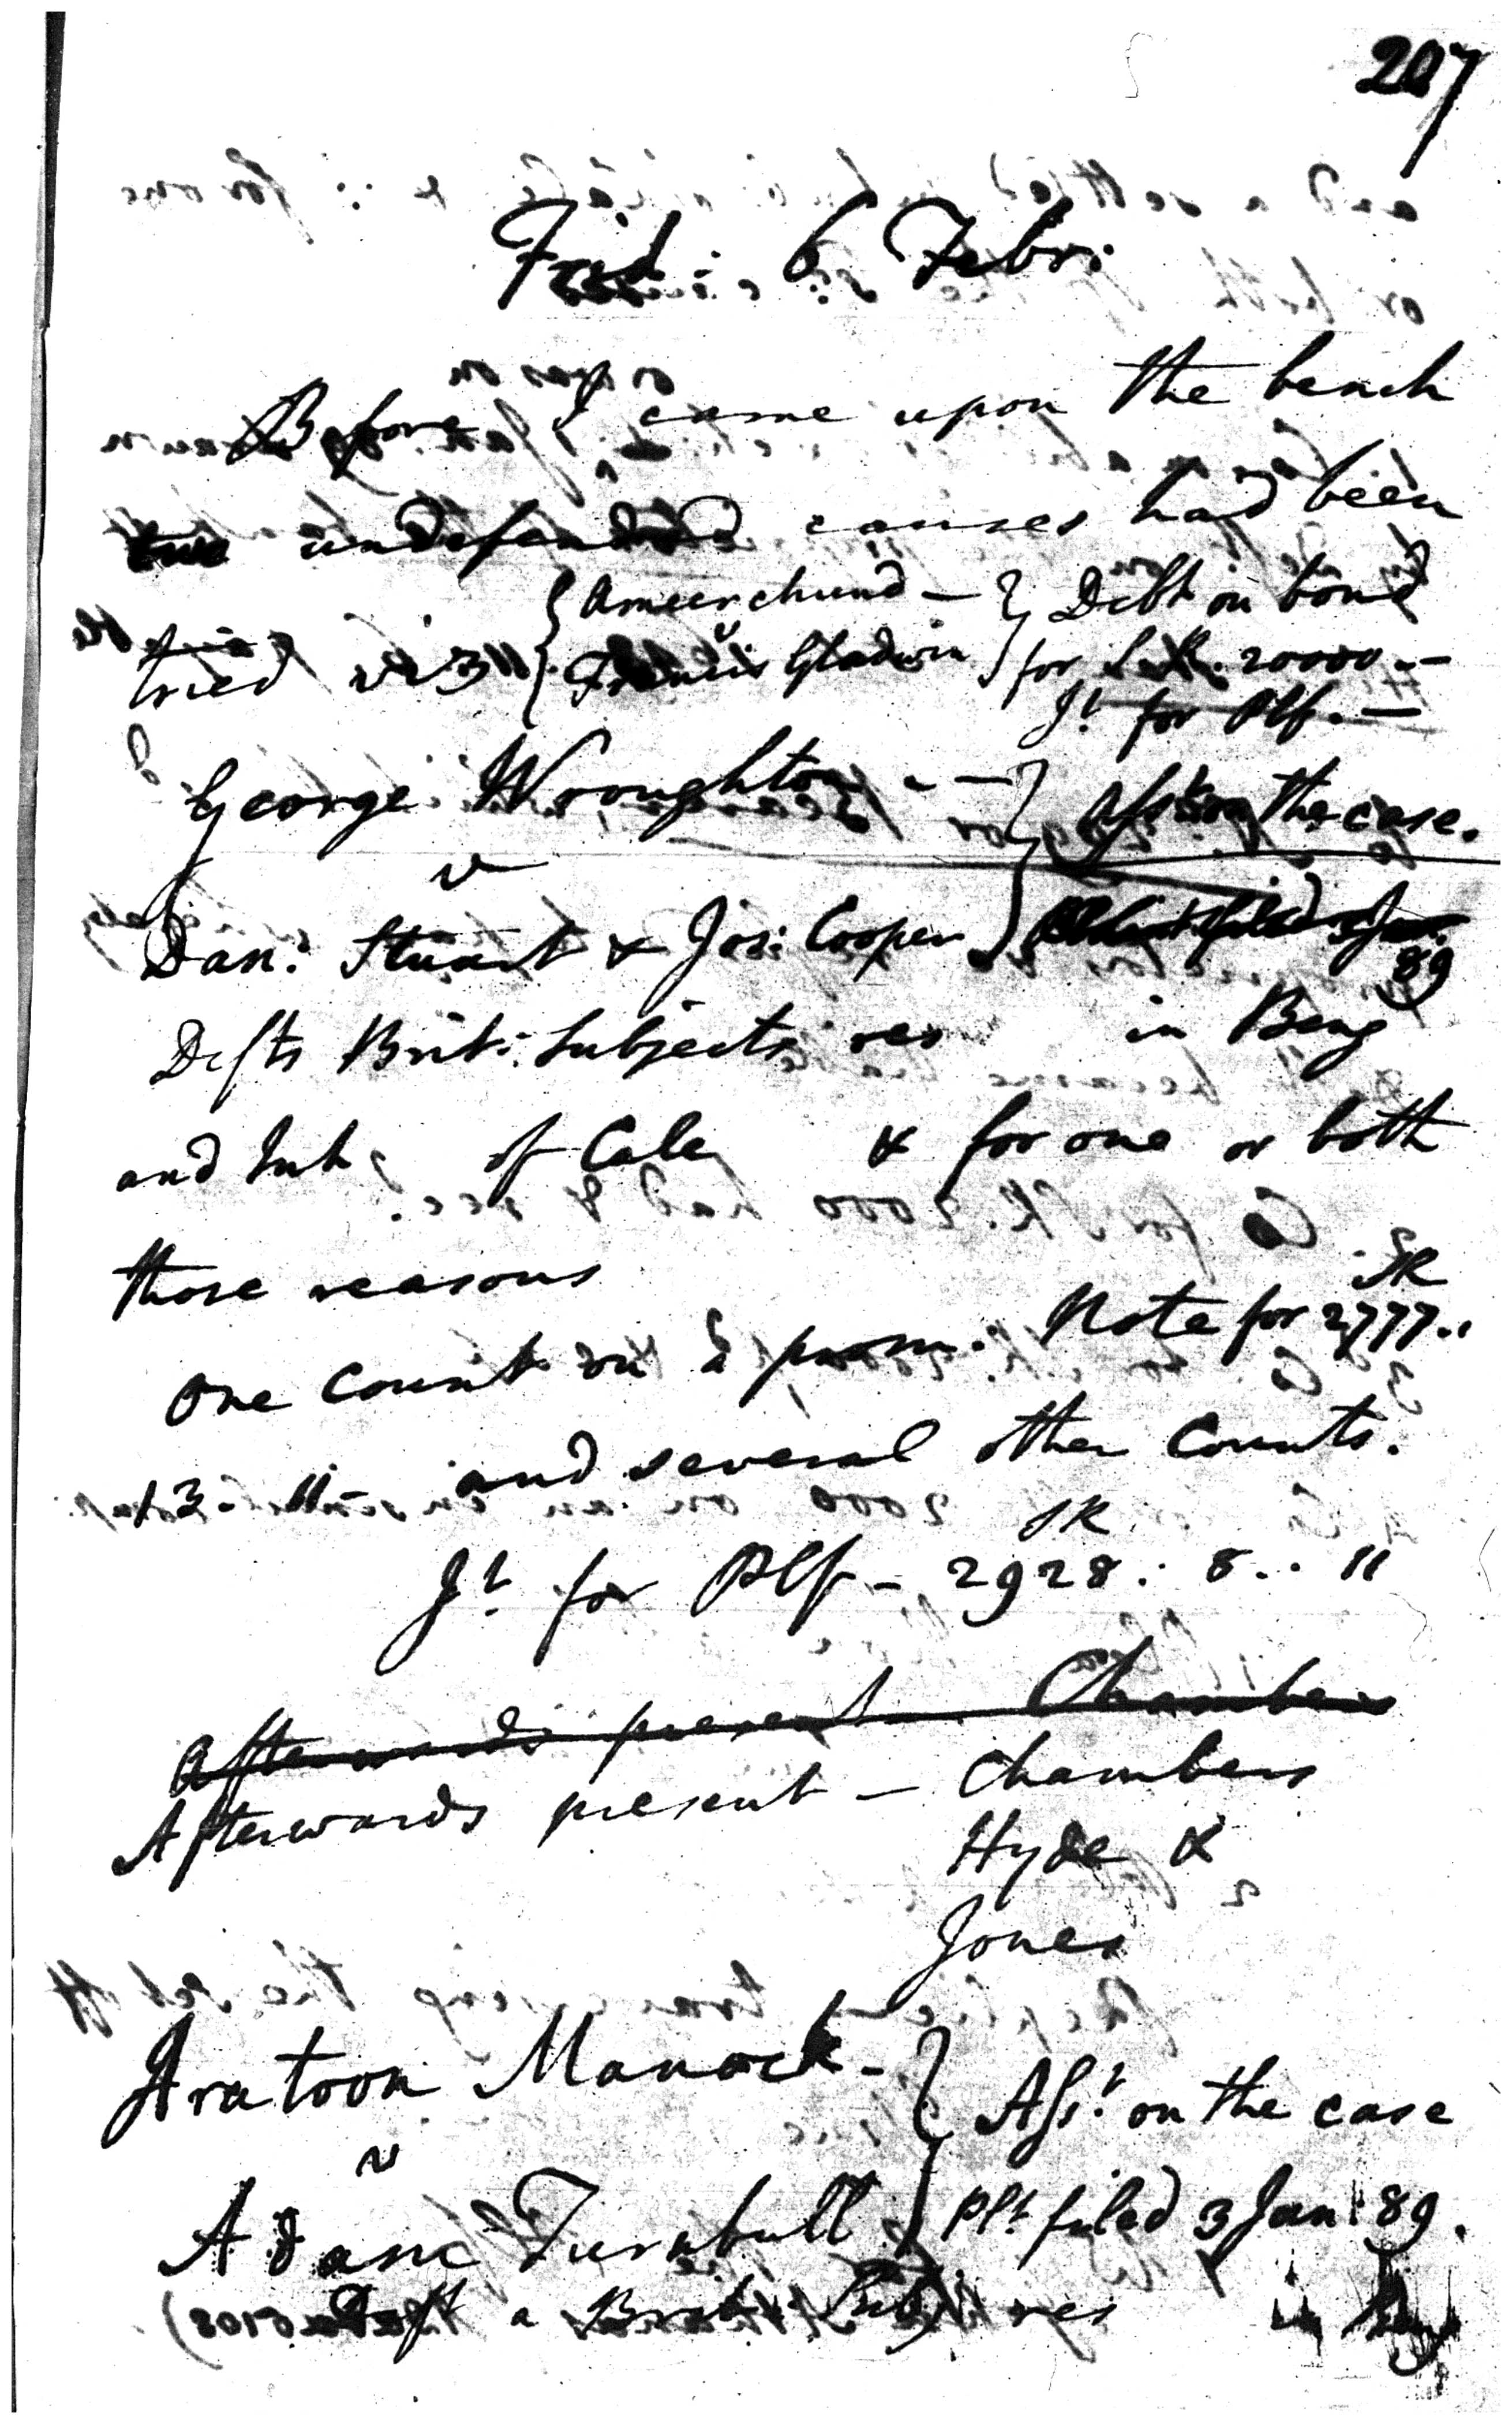 207
Frid: 6 Febr:
Before I came upon the bench
two undefended causes had been
tried viz { Ameerchund — } Debt on bond
v
Francis Gladwin } for S.R. 20000 —
Jt. for Plf. —
George Wroughton — } Asst. on the case.
v
Dan: Stuart & Jos: Cooper } Plaint filed Jan.
89
Defts Brit: Subjects res in Beng
and Inh of Calc & for one or both
those reasons
SR
One Count on a prom. Note for 2777 ..
13 - 11 - and several other Counts.
SR
Jt. for Plf - 2928 : 8 .. 11
Afterwards present — Chambers
Afterwards present — Chambers
Hyde &
Jones
Aratoon Manack - } Asst. on the case
v
Adam Turnbull } Plt. filed 3 Jan: 89.
Deft a Brit: Subj res in Beng